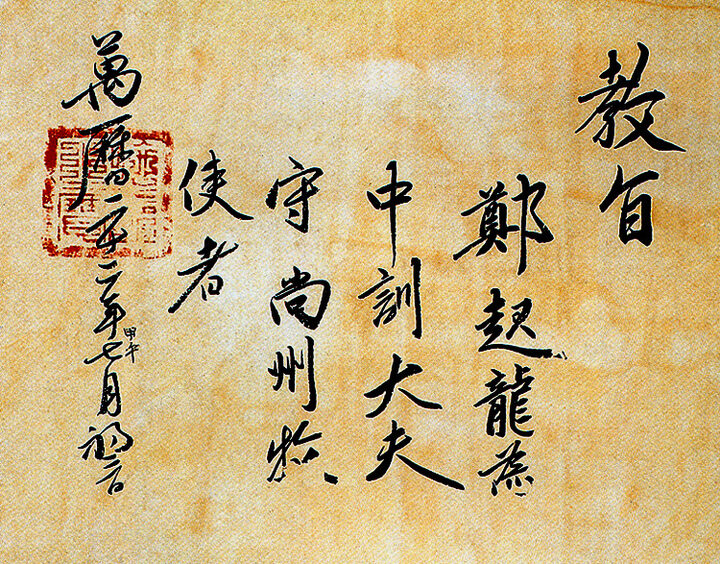 教旨
鄭起龍爲
中訓大夫
守尚州牧
使者
萬曆二十二年甲午七月初二日